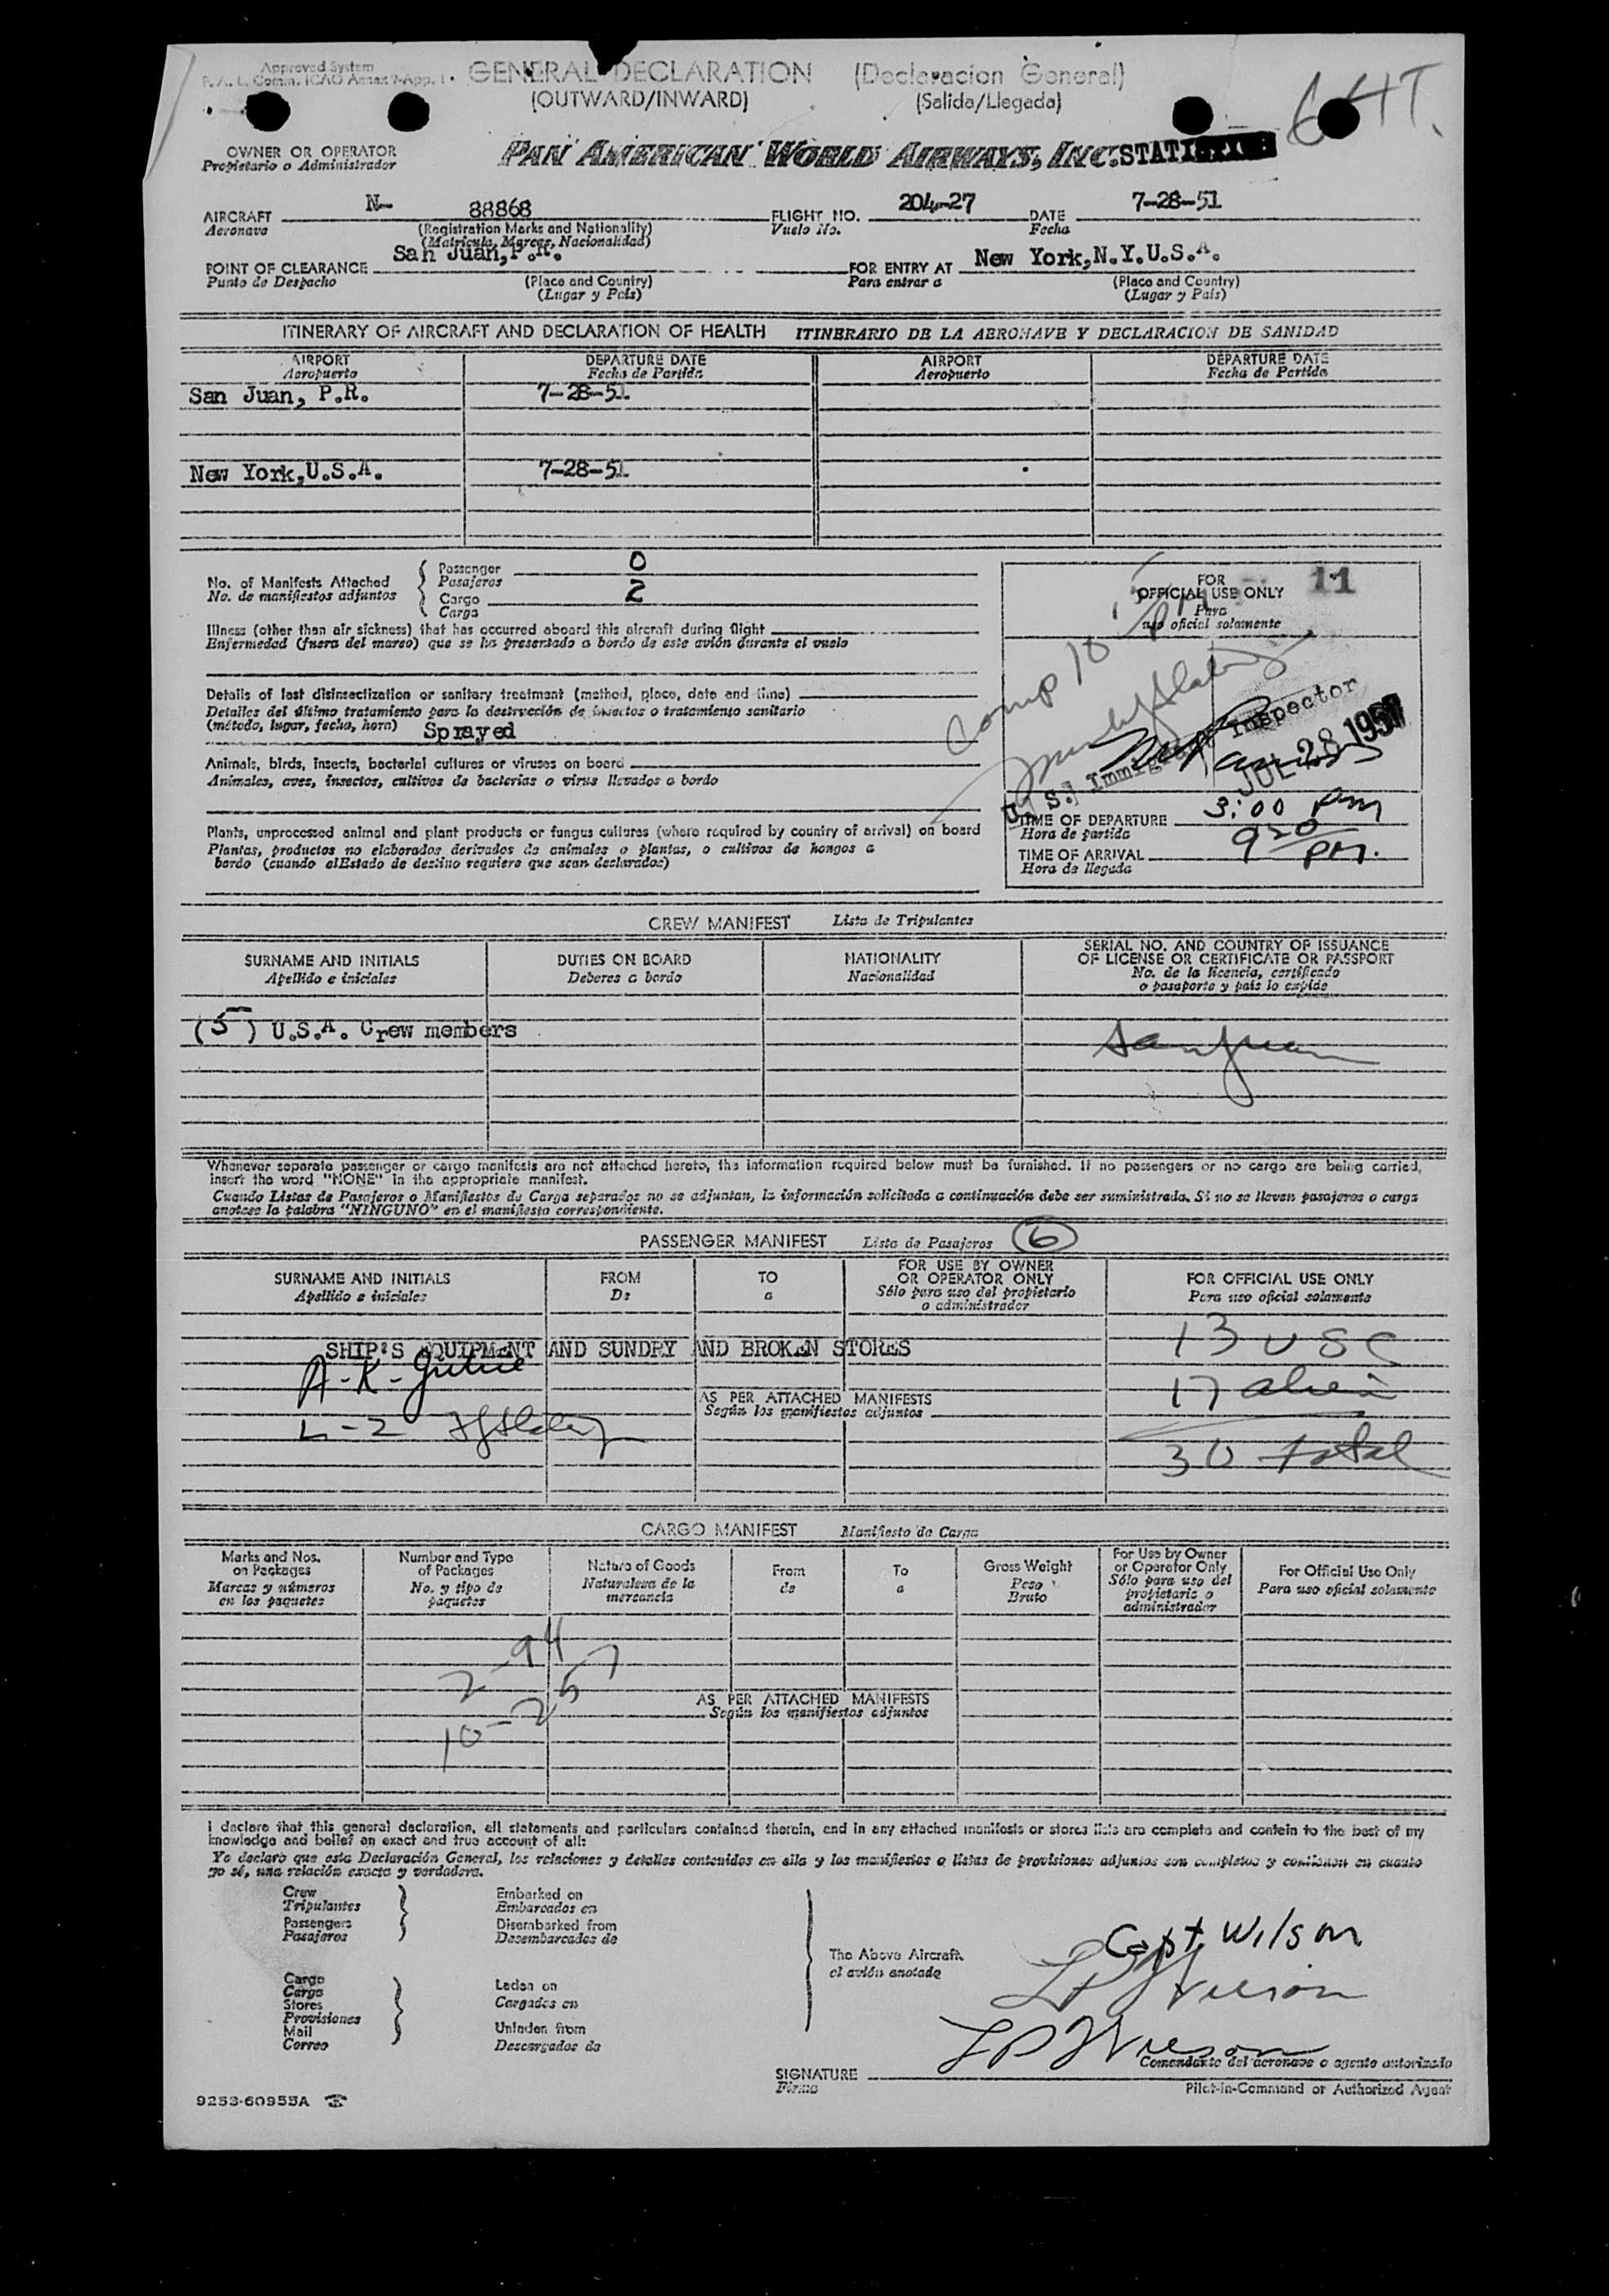 Approved System
P. A. L. Comm. ICAO Annex 9-App. 1
GENERAL DECLARATION (Declaracion General)
(OUTWARD/INWARD) (Salida/Llegada)
OWNER OR OPERATOR
Propietario o Administrador
PAN AMERICAN WORLD AIRWAYS, INC.
AIRCRAFT N- 88868 FLIGHT NO. 204-27 DATE 7-28-51
Aeronave (Registration Marks and Nationality) Vuelo No. Fecha
(Matrícula, Marcas, Nacionalidad)
POINT OF CLEARANCE San Juan, P.R. FOR ENTRY AT New York,N.Y.U.S.A.
Punto de Despacho (Place and Country) Para entrar a (Place and Country)
(Lugar y País) (Lugar y País)
ITINERARY OF AIRCRAFT AND DECLARATION OF HEALTH ITINERARIO DE LA AERONAVE Y DECLARACION DE SANIDAD
AIRPORT DEPARTURE DATE AIRPORT DEPARTURE DATE
Aeropuerto Fecha de Partida Aeropuerto Fecha de Partida
San Juan, P.R. 7-28-51
New York,U.S.A. 7-28-51
No. of Manifests Attached
No. de manifiestos adjuntos
Passenger 0
Pasajeros
Cargo 2
Carga
Illness (other than air sickness) that has occurred aboard this aircraft during flight
Enfermedad (fuera del mareo) que se ha presentado a bordo de este avión durante el vuelo
Details of last disinsectization or sanitary treatment (method, place, date and time)
Detalles del último tratamiento para la destrucción de insectos o tratamiento sanitario
(método, lugar, fecha, hora) Sprayed
Animals, birds, insects, bacterial cultures or viruses on board
Animales, aves, insectos, cultivos de bacterias o virus llevados a bordo
Plants, unprocessed animal and plant products or fungus cultures (where required by country of arrival) on board
Plantas, productos no elaborados derivados de animales o plantas, o cultivos de hongos a
bordo (cuando elEstado de destino requiere que sean declarados)
FOR 11
OFFICIAL USE ONLY
Para
uso oficial solamente
U. S. Immigrant Inspector
JUL 28 1951
TIME OF DEPARTURE 3:00 PM
Hora de partida
TIME OF ARRIVAL 9 20 PM.
Hora de llegada
CREW MANIFEST Lista de Tripulantes
SURNAME AND INITIALS DUTIES ON BOARD NATIONALITY SERIAL NO. AND COUNTRY OF ISSUANCE
OF LICENSE OR CERTIFICATE OR PASSPORT
Apellido e iniciales Deberes a bordo Nacionalidad No. de la licencia, certificado
o pasaporte y país lo expide
(5) U.S.A. Crew members
San Juan
Whenever separate passenger or cargo manifests are not attached hereto, the information required below must be furnished. If no passengers or no cargo are being carried,
insert the word "NONE" in the appropriate manifest.
Cuando Listas de Pasajeros o Manifiestos de Carga separados no se adjuntan, la información solicitada a continuación debe ser suministrada. Si no se llevan pasajeros o carga
anotese la palabra "NINGUNO" en el manifiesto correspondiente.
PASSENGER MANIFEST Lista de Pasajeros 6
SURNAME AND INITIALS FROM TO FOR USE BY OWNER
OR OPERATOR ONLY FOR OFFICIAL USE ONLY
Apellido e iniciales De a Sólo para uso del propietario
o administrador Para uso oficial solamente
SHIP'S EQUIPMENT AND SUNDRY AND BROKEN STORES
13 USC
17 alien
AS PER ATTACHED MANIFESTS
Según los manifiestos adjuntos
30 total
CARGO MANIFEST Manifiesto de Carga
Marks and Nos.
on Packages
Marcas y números
en los paquetes
Number and Type
of Packages
No. y tipo de
paquetes
Nature of Goods
Naturaleza de la
mercancía
From
de
To
a
Gross Weight
Peso
Bruto
For Use by Owner
or Operator Only
Sólo para uso del
propietario o
administrador
For Official Use Only
Para uso oficial solamente
2-94
10-257
AS PER ATTACHED MANIFESTS
Según los manifiestos adjuntos
I declare that this general declaration, all statements and particulars contained therein, and in any attached manifests or stores lists are complete and contain to the best of my
knowledge and belief an exact and true account of all:
Yo declaro que esta Declaración General, las relaciones y detalles contenidos en ella y los manifiestos o listas de provisiones adjuntos son completos y contienen en cuanto
yo sé, una relación exacta y verdadera.
Crew
Tripulantes
Passengers
Pasajeros
Embarked on
Embarcados en
Disembarked from
Desembarcados de
Cargo
Carga
Stores
Provisiones
Mail
Correo
Laden on
Cargados en
Unladen from
Descargados de
The Above Aircraft.
el avión anotado
Capt. Wilson
LP Wilson
LP Wilson
Comandante del aeronave o agente autorizado
SIGNATURE
Firma
Pilot-in-Command or Authorized Agent
9253-60955A